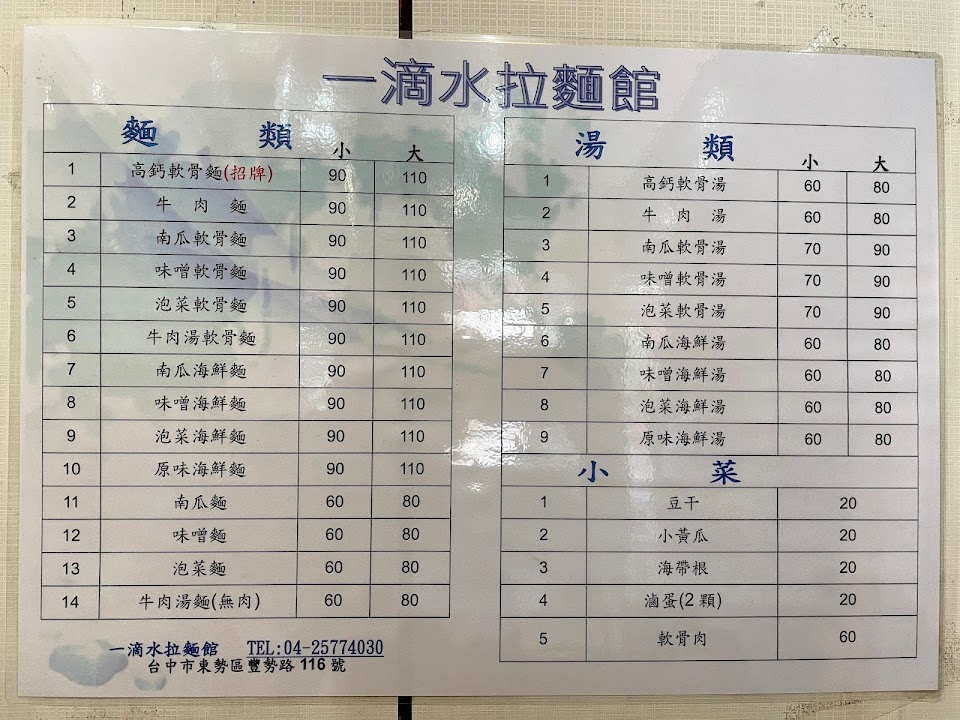 一滴水拉麵館
麵 類 小 大
1 高鈣軟骨麵(招牌) 90 110
2 牛肉麵 90 110
3 南瓜軟骨麵 90 110
4 味噌軟骨麵 90 110
5 泡菜軟骨麵 90 110
6 牛肉湯軟骨麵 90 110
7 南瓜海鮮麵 90 110
8 味噌海鮮麵 90 110
9 泡菜海鮮麵 90 110
10 原味海鮮麵 90 110
11 南瓜麵 60 80
12 味噌麵 60 80
13 泡菜麵 60 80
14 牛肉湯麵(無肉) 60 80
湯 類 小 大
1 高鈣軟骨湯 60 80
2 牛肉湯 60 80
3 南瓜軟骨湯 70 90
4 味噌軟骨湯 70 90
5 泡菜軟骨湯 70 90
6 南瓜海鮮湯 60 80
7 味噌海鮮湯 60 80
8 泡菜海鮮湯 60 80
9 原味海鮮湯 60 80
小 菜
1 豆干 20
2 小黃瓜 20
3 海帶根 20
4 滷蛋(2 顆) 20
5 軟骨肉 60
一滴水拉麵館 TEL:04-25774030
台中市東勢區豐勢路 116 號